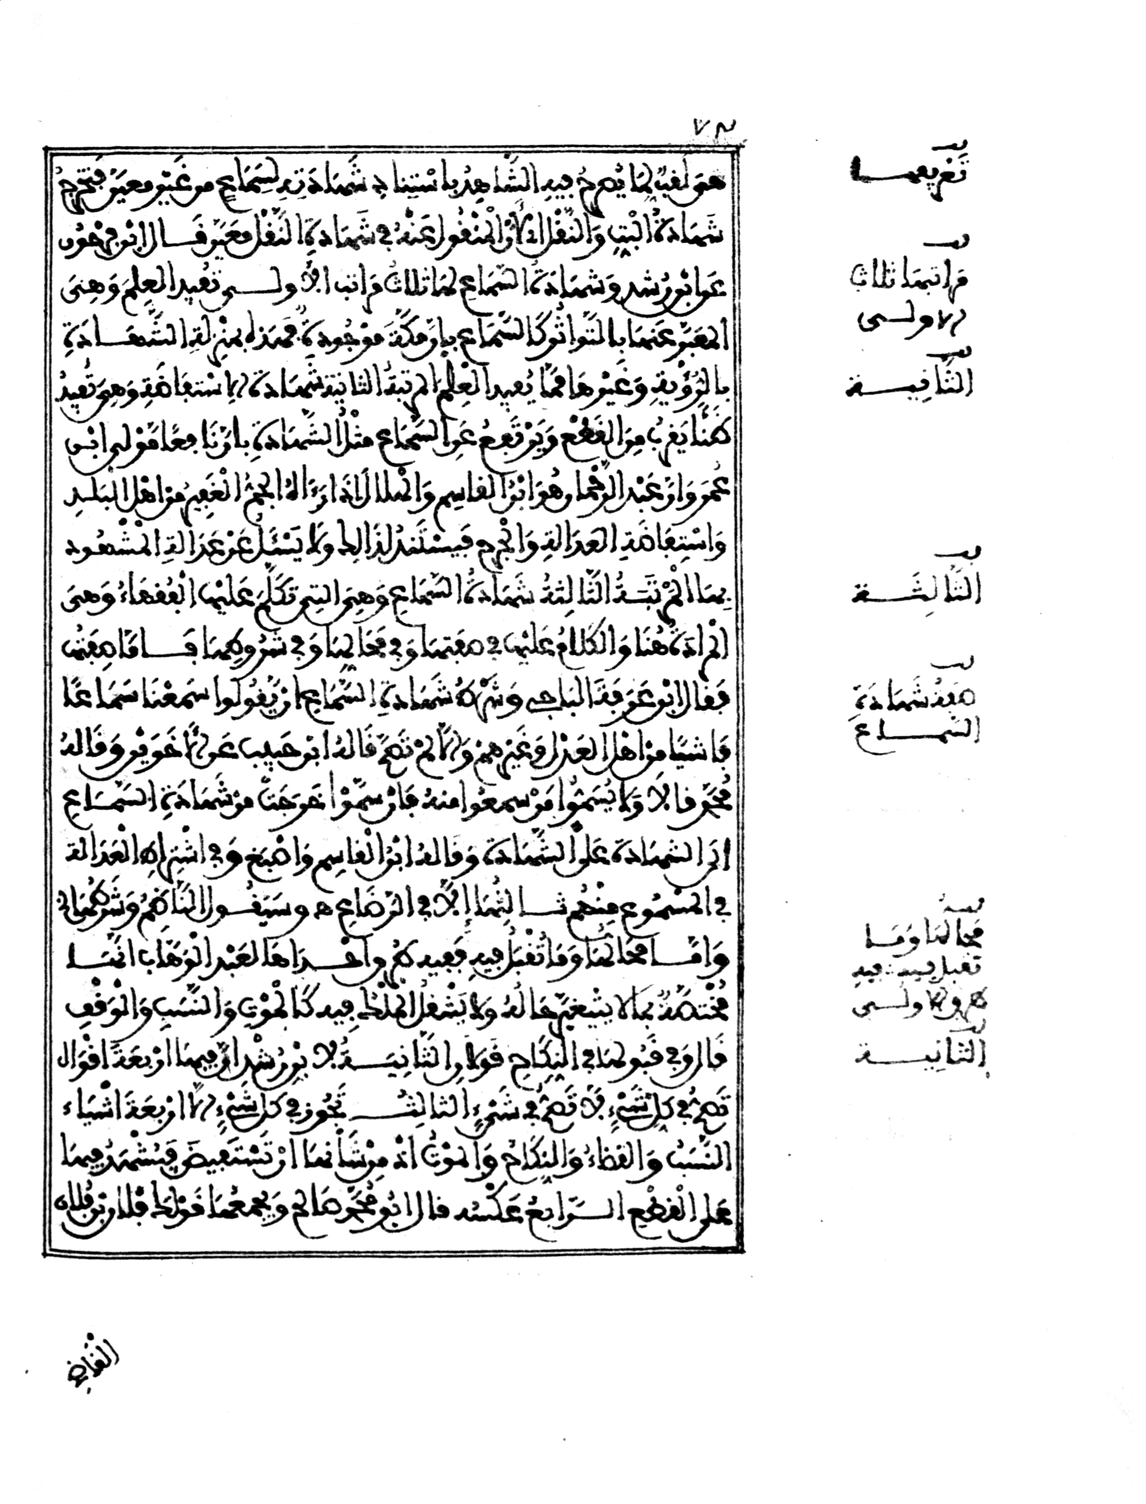 ٧٣
هو لقب لما يصرح فيه الشاهد باستناد شهادته لسماع من غير معين فتخرج
شهادة البت والنقل لأن المنقول عنه في شهادة النقل معين قال ابن فرحون
عن ابن رشد وشهادة السماع لها ثلاث مراتب الأولى تفيد العلم وهي
المعبر عنها بالتواتر كالسماع بأن مكة موجودة فهذه بمنزلة الشهادة
بالرؤية وغيرها مما يفيد العلم المرتبة الثانية شهادة الاستفاضة وهي تفيد
ظنا يقرب من القطع ويرتفع عن السماع مثل الشهادة بأن نافعا مولى ابن
عمر وأن عبد الرحمان هو ابن القاسم والهلال إذا رءاه الجم الغفير من أهل البلد
واستفاضة العدالة والجرح فيستند لذالك ولا يسئل عن عدالة المشهود
بها المرتبة الثالثة شهادة السماع وهي التي تكلم عليها الفقهاء وهي
المرادة هنا والكلام عليها في صفتها وفي محالها وفي شروطها فأما صفتها
فقال ابن عرفة الباجي وشرط شهادة السماع أن يقولوا سمعنا سماعا
فاشيا من أهل العدل وغيرهم وإلا لم تصح قاله ابن حبيب عن الأخوين وقاله
محمد قالا ولا يسموا من سمعوا منه فإن سموا خرجت من شهادة السماع
إلى الشهادة على الشهادة وقاله ابن القاسم وأصبغ وفي اشتراط العدالة
في المسموع منهم ثالثها إلا في الرضاع ه وسيقول الناظم وشرطها
وأما محالها وما تقبل فيه ففيه طرق واحداها لعبد الوهاب أنها
مختصة بما لا يتغير حاله ولا ينتقل الملك فيه كالموت والنسب والوقف
قال وفي قبولها في النكاح قولان الثانية لابن رشد أن فيها أربعة أقوال
تصح في كل شيء لا تصح في شيء الثالث تجوز في كل شيء إلا أربعة أشياء
النسب والقضاء والنكاح والموت إذ من شأنها أن تستفيض فيشهد فيها
على القطع الرابع عكسه قال أبو محمد صالح ويجمعها قولك
تعريفها
مراتبها ثلاث
الاولى
الثانية
الثالثة
صفة شهادة
السماع
محالها وما
تقبل فيه فيه
طرق الاولى
الثانية